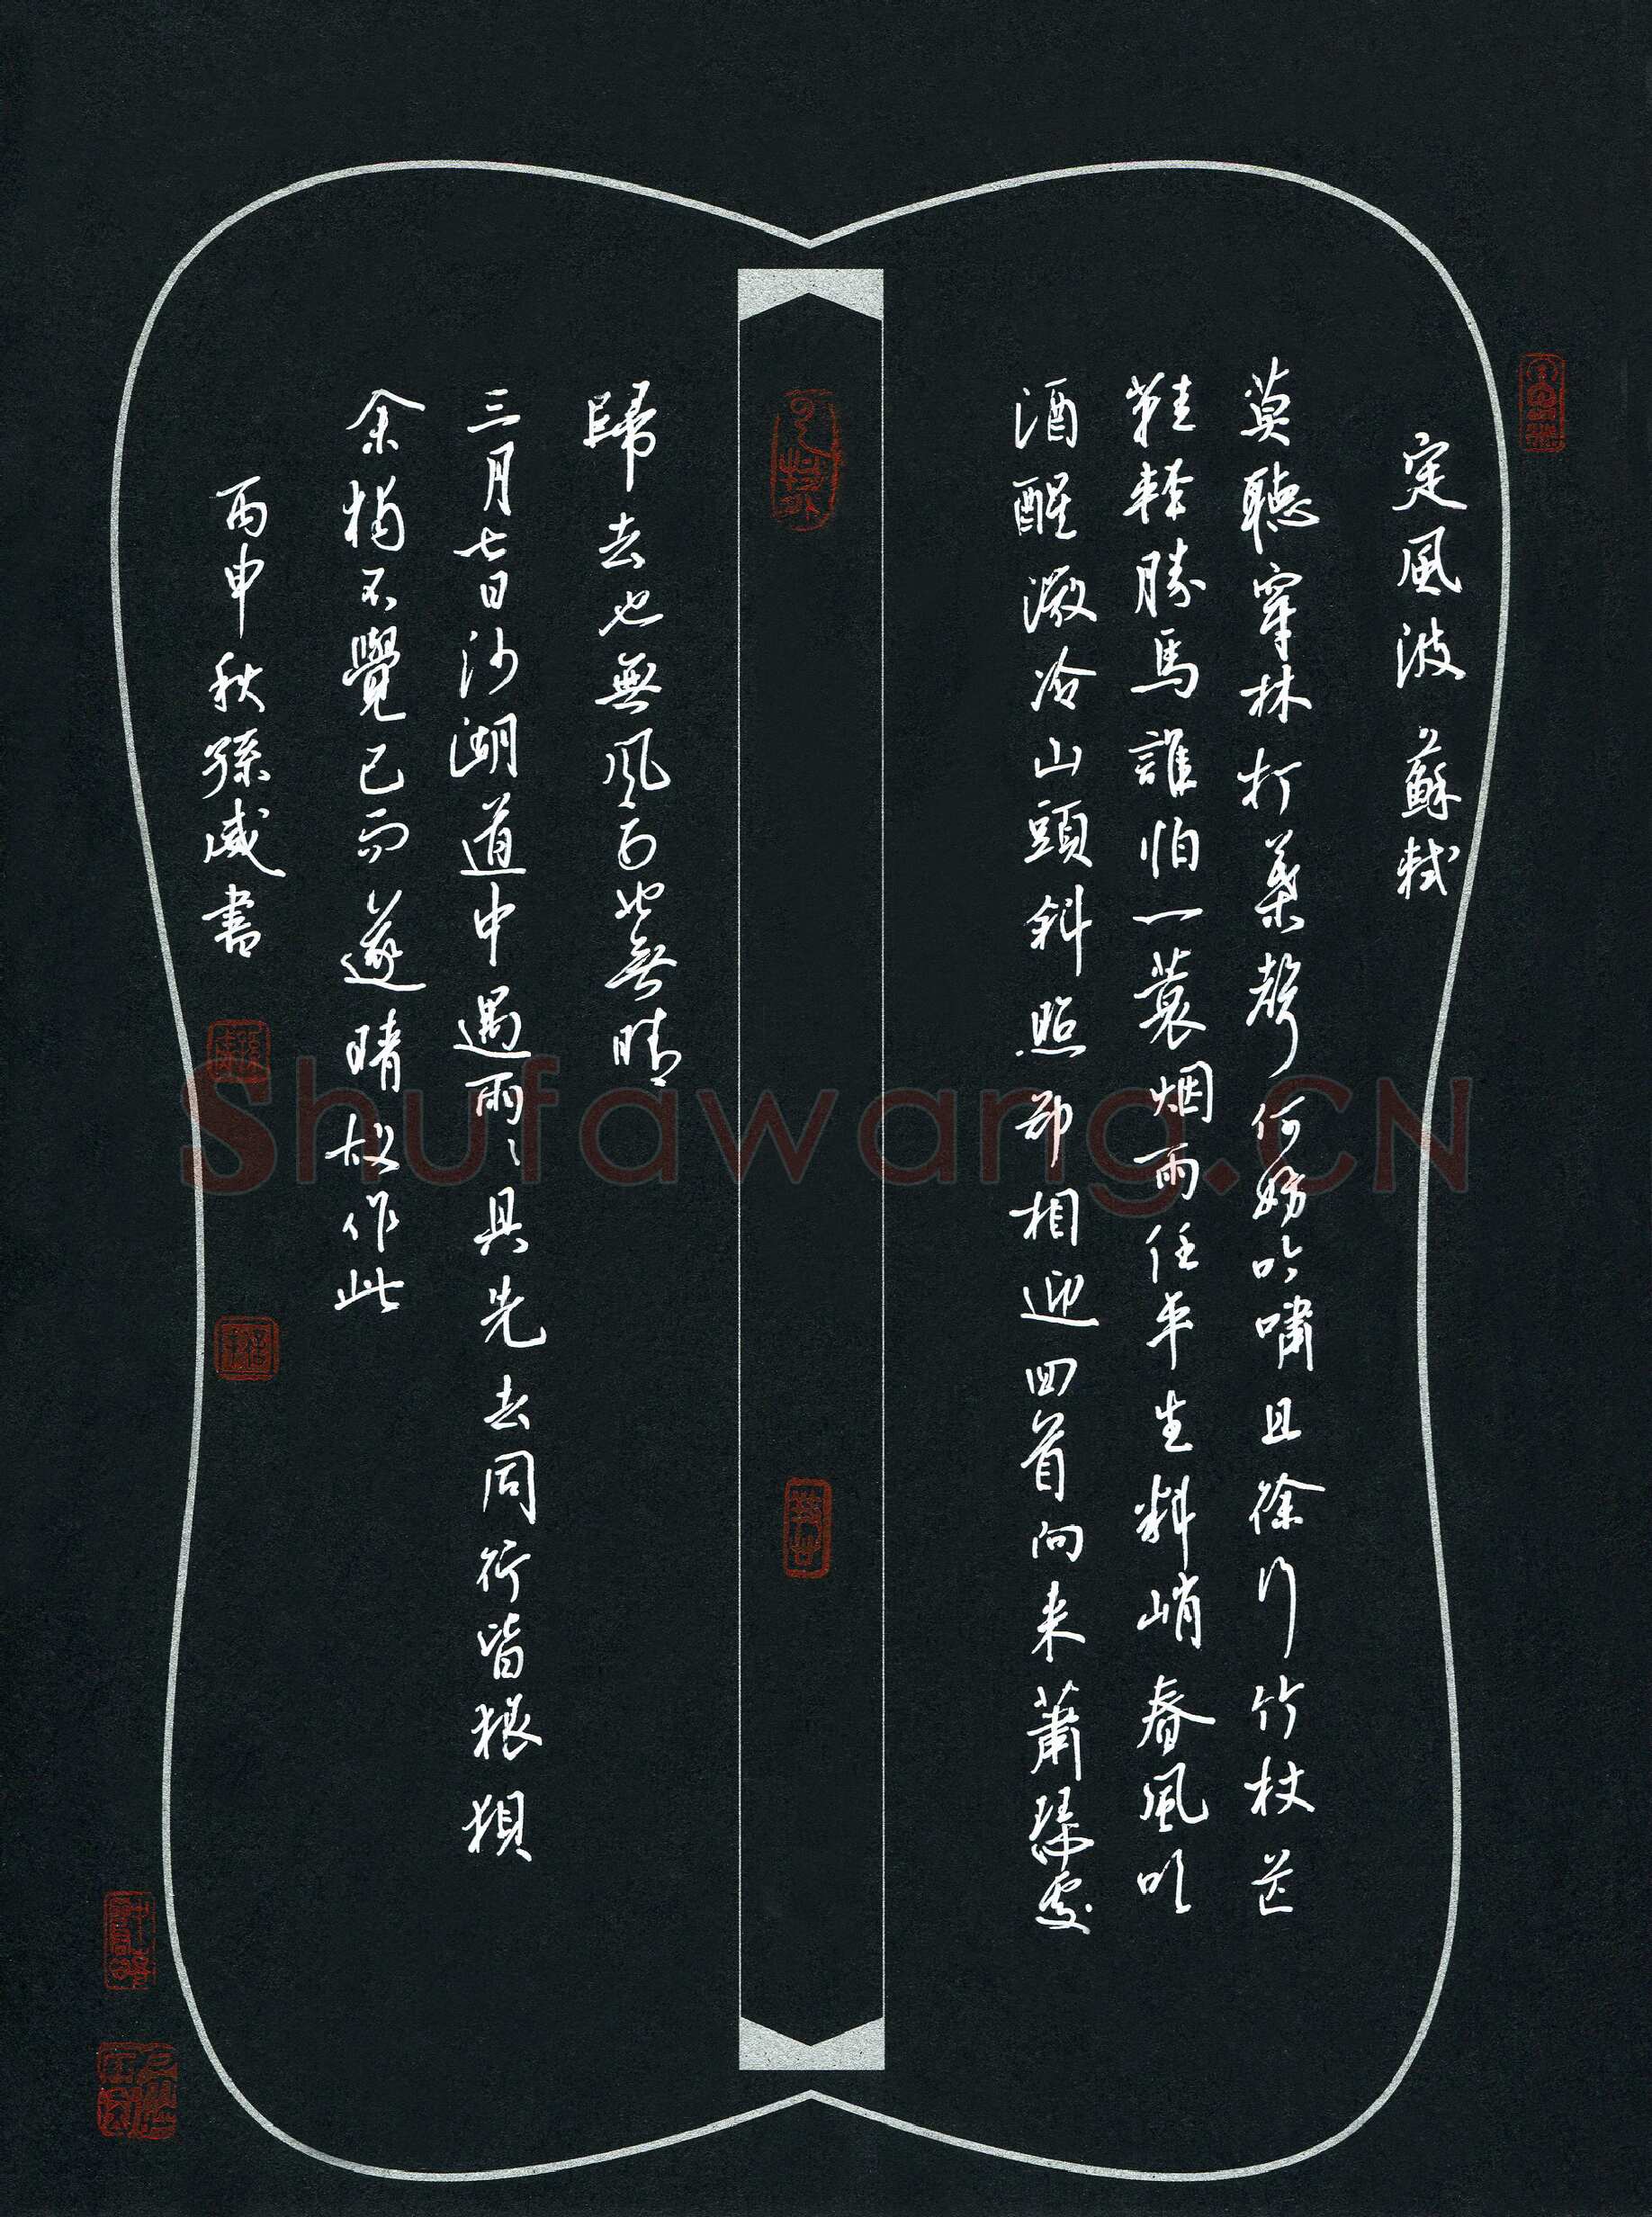 定風波 蘇軾
莫聽穿林打葉聲何妨吟嘯且徐行竹杖芒
鞋輕勝馬誰怕一蓑烟雨任平生料峭春風吹
酒醒微冷山頭斜照却相迎回首向来蕭瑟處
歸去也無風雨也無晴
三月七日沙湖道中遇雨〻具先去同行皆狼狽
余獨不覺已而遂晴故作此
丙申秋孫威書
Shufawang.CN